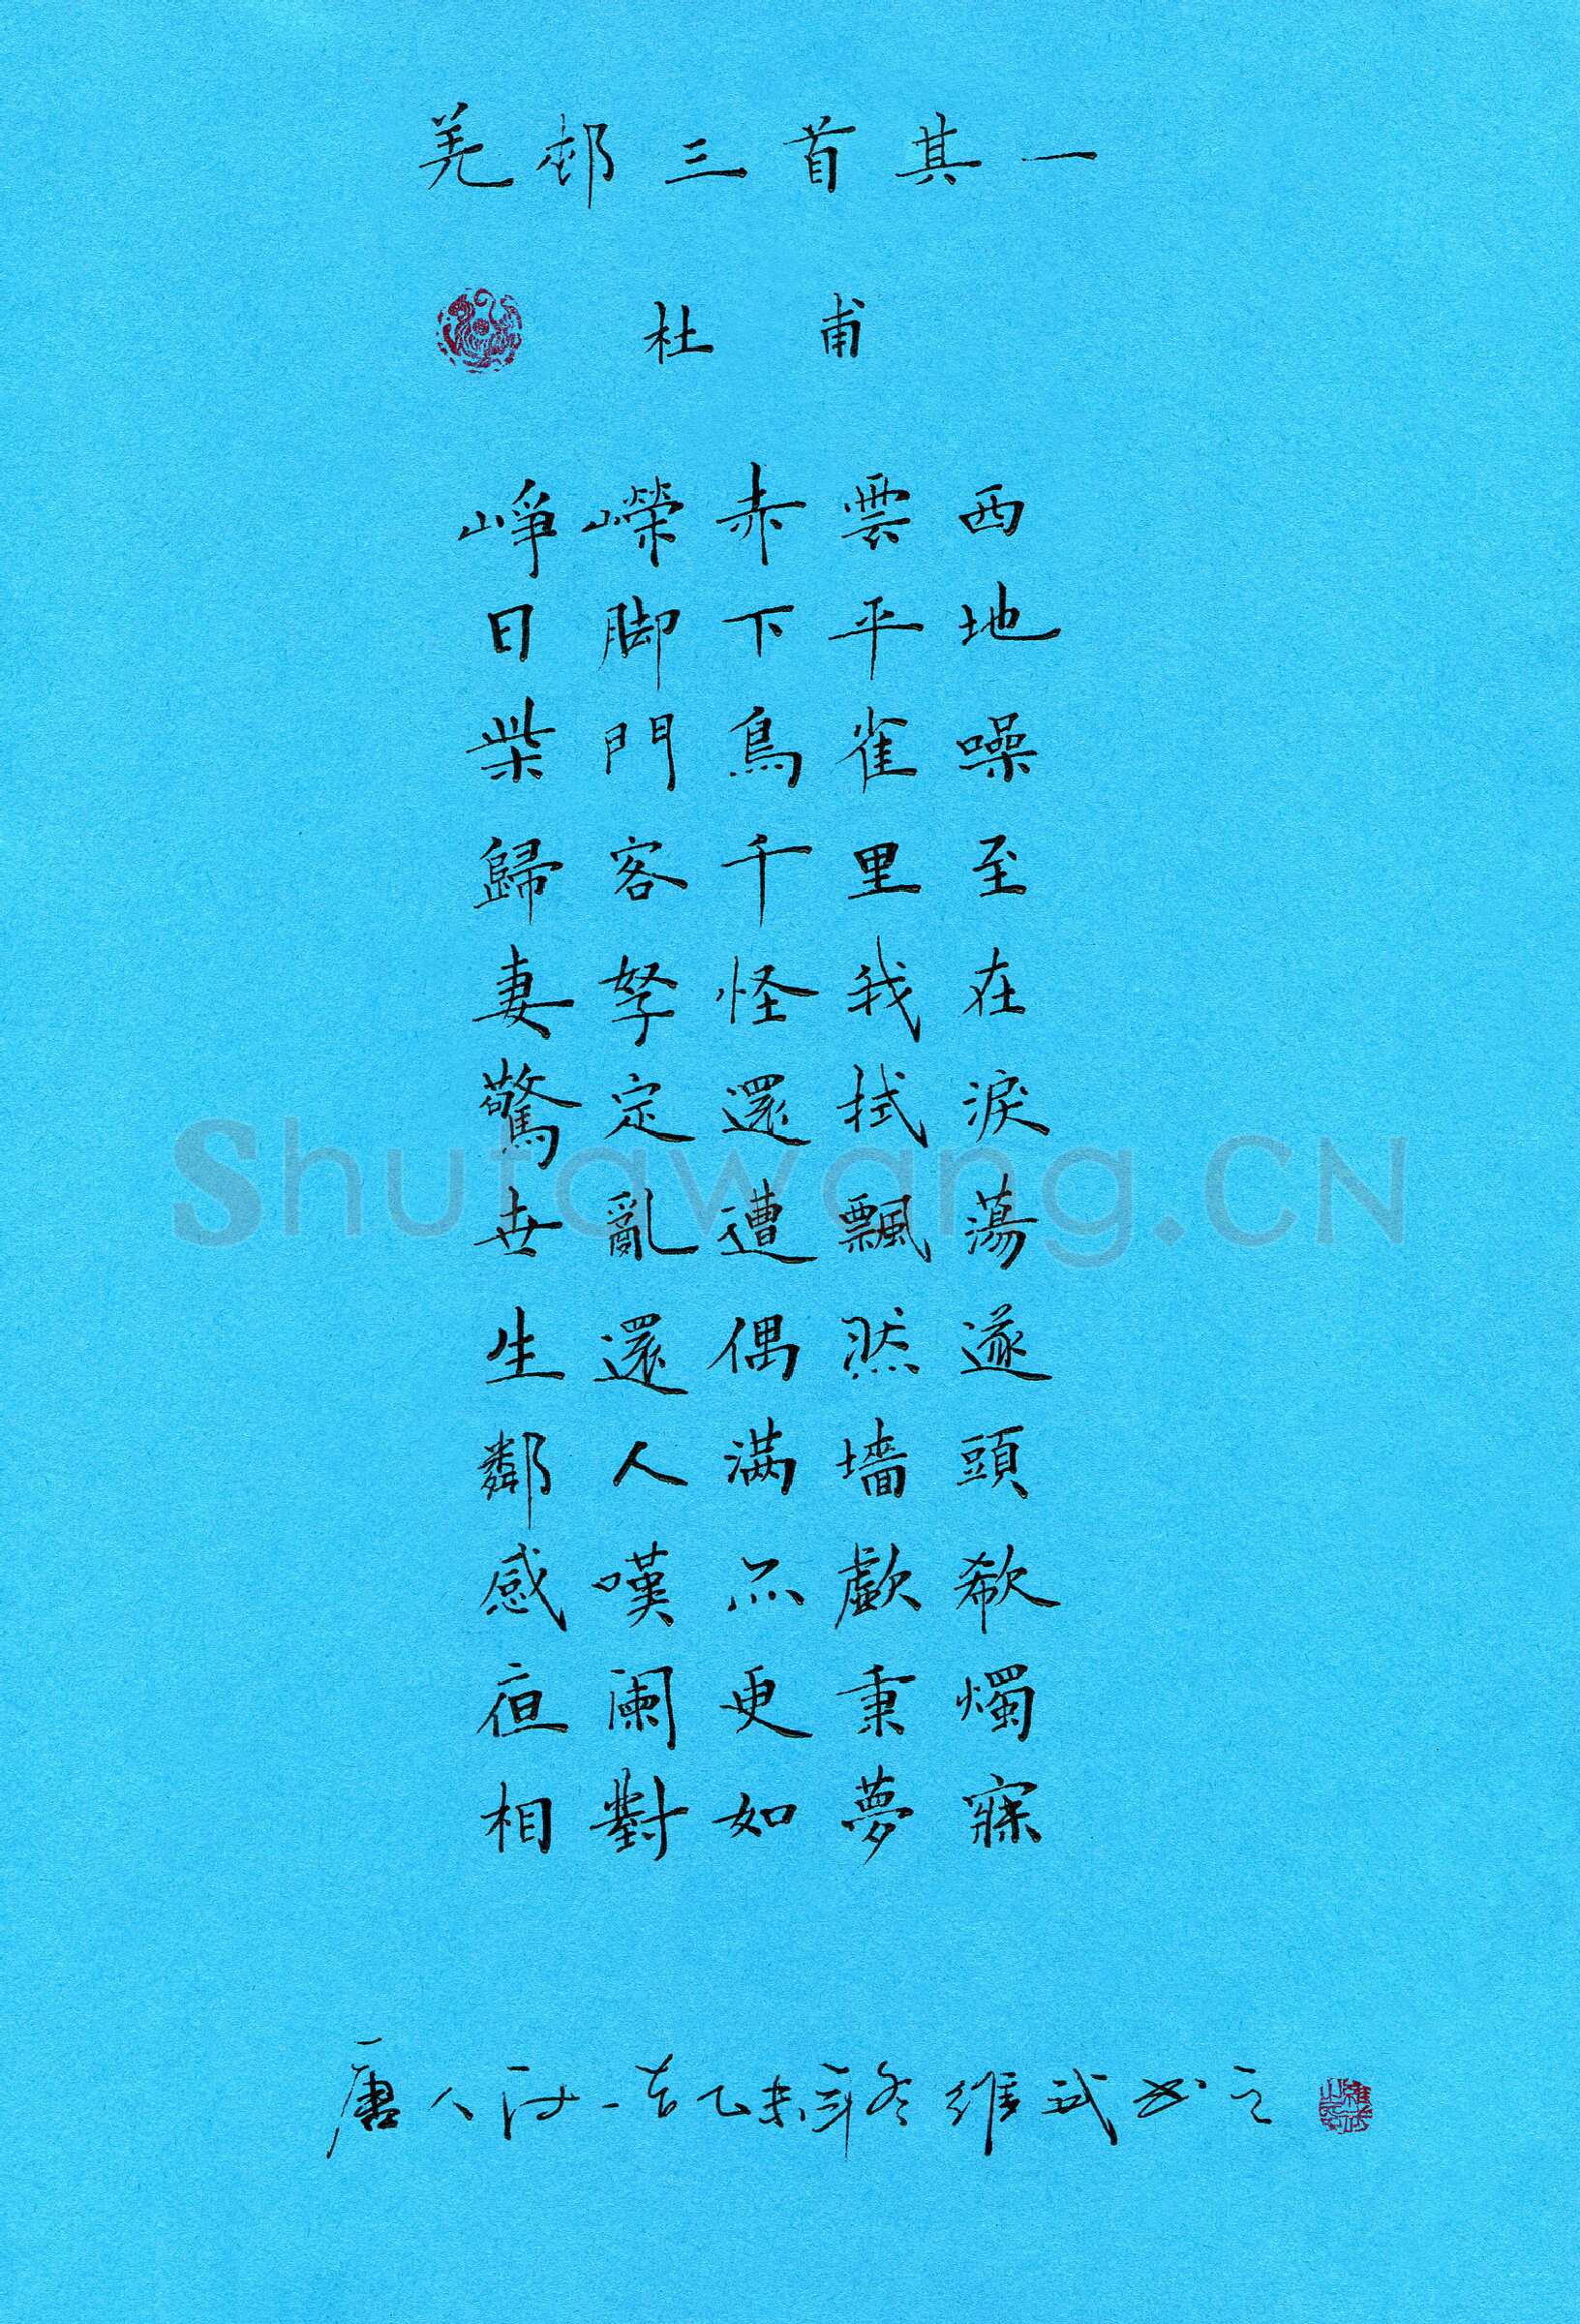 羌邨三首其一
杜甫
崢嶸赤雲西
日脚下平地
柴門鳥雀噪
歸客千里至
妻孥怪我在
驚定還拭淚
世亂遭飄蕩
生還偶然遂
鄰人滿墻頭
感嘆亦歔欷
夜闌更秉燭
相對如夢寐
唐人詩一首乙未年冬維武书之
Shufawang.CN